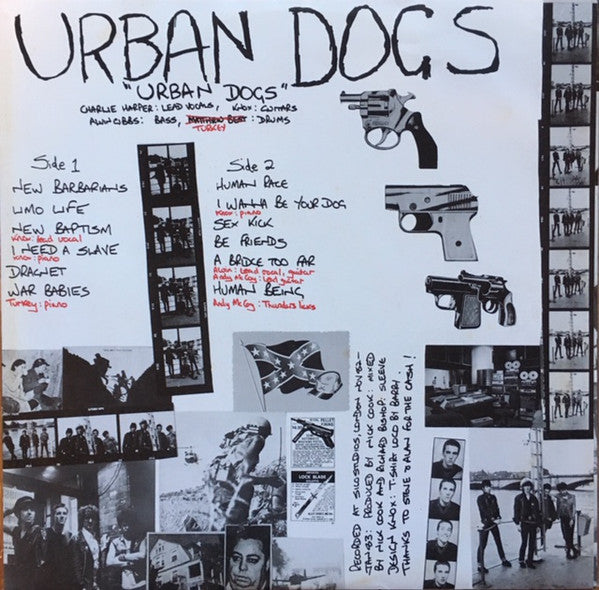 URBAN DOGS
"URBAN DOGS"
CHARLIE HARPER: LEAD VOCALS, KNOX: GUITARS
ALAN GIBBS: BASS, MATTHEW BEST: DRUMS
TURKEY
Side 1
NEW BARBARIANS
LIMO LIFE
NEW BAPTISM
Knox: lead vocal
I NEED A SLAVE
Knox: piano
DRAGNET
WAR BABIES
Turkey: piano
Side 2
HUMAN RACE
I WANNA BE YOUR DOG
Knox: piano
SEX KICK
BE FRIENDS
A BRIDGE TOO FAR
Alan: Lead vocal, guitar
Andy McCoy: Lead guitar
HUMAN BEING
Andy McCoy: Thunders licks
RECORDED AT SILO STUDIOS, LONDON NOV 82-
JAN 83: PRODUCED BY MICK COOK: MIXED
BY MICK COOK AND RICHARD BISHOP: SLEEVE
DESIGN KNOX: T-SHIRT LOGO BY BARRY.
THANKS TO STEVE & ALAN FOR THE CASH!
PELLET
LOCK BLADE